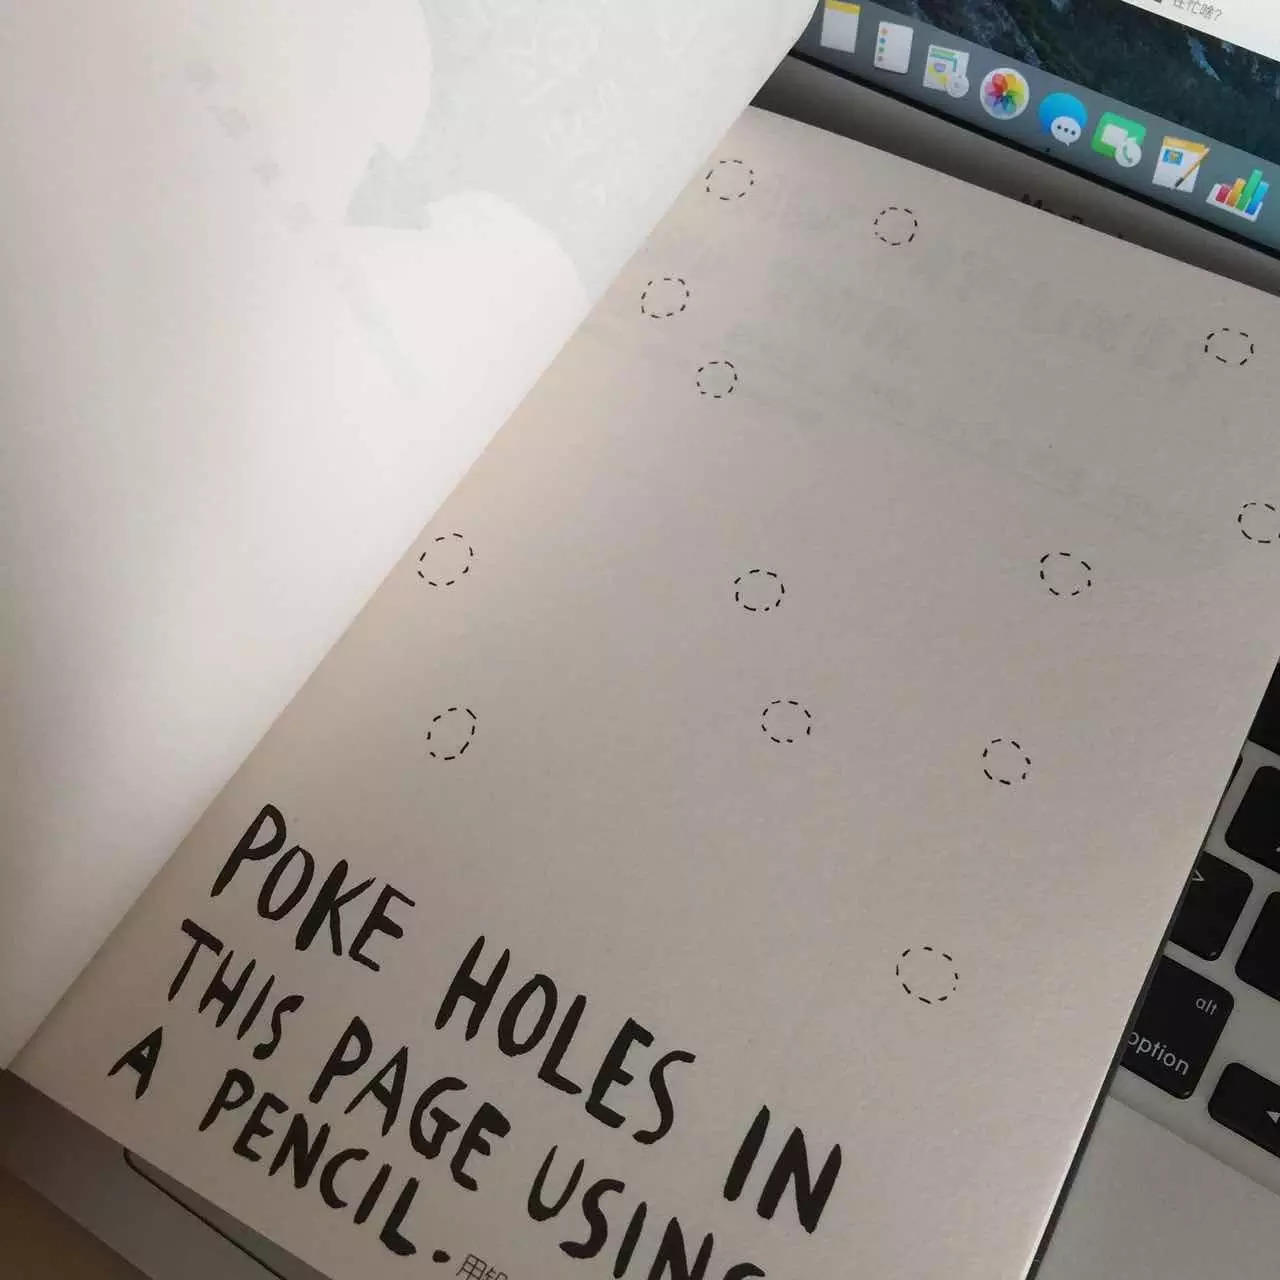 在忙啥?
POKE HOLES IN
THIS PAGE USING
A PENCIL.
用铅
alt
option